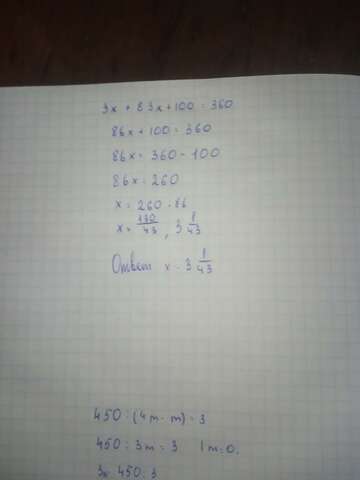 3x + 83x + 100 = 360
86x + 100 = 360
86x = 360 - 100
86x = 260
x = 260 : 86
x = 130/43 , 3 1/43
Ответ x = 3 1/43
450 : (4m - m) = 3
450 : 3m = 3 1m = 0.
3x 450 : 3